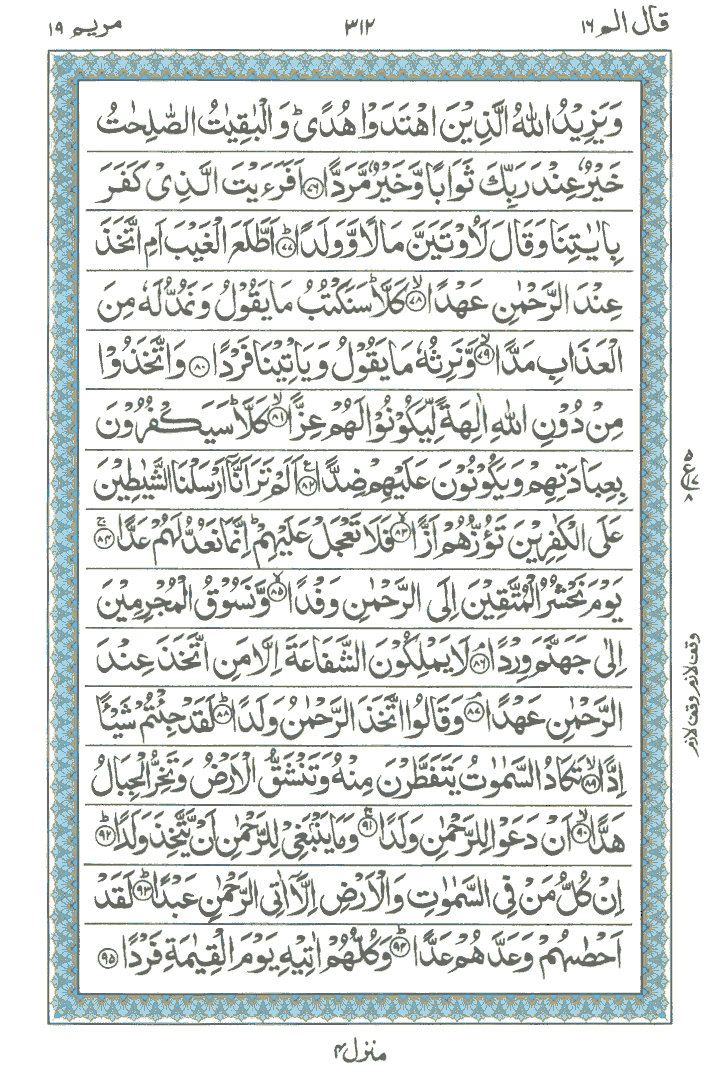 قال الم ١٦
٣١٢
مريم ١٩
وَيَزِيْدُ اللّٰهُ الَّذِيْنَ اهْتَدَوْا هُدًى ؕ وَالْبٰقِيٰتُ الصّٰلِحٰتُ
خَيْرٌ عِنْدَ رَبِّكَ ثَوَابًا وَّخَيْرٌ مَّرَدًّا ﴿۷۶﴾ اَفَرَءَيْتَ الَّذِىْ كَفَرَ
بِاٰيٰتِنَا وَقَالَ لَاُوْتَيَنَّ مَالًا وَّوَلَدًا ؕ﴿۷۷﴾ اَطَّلَعَ الْغَيْبَ اَمِ اتَّخَذَ
عِنْدَ الرَّحْمٰنِ عَهْدًا ۙ﴿۷۸﴾ كَلَّا ؕ سَنَكْتُبُ مَا يَقُوْلُ وَنَمُدُّ لَهٗ مِنَ
الْعَذَابِ مَدًّا ۙ﴿۷۹﴾ وَّنَرِثُهٗ مَا يَقُوْلُ وَيَاْتِيْنَا فَرْدًا ﴿۸۰﴾ وَاتَّخَذُوْا
مِنْ دُوْنِ اللّٰهِ اٰلِهَةً لِّيَكُوْنُوْا لَهُمْ عِزًّا ۙ﴿۸۱﴾ كَلَّا ؕ سَيَكْفُرُوْنَ
بِعِبَادَتِهِمْ وَيَكُوْنُوْنَ عَلَيْهِمْ ضِدًّا ﴿۸۲﴾ اَلَمْ تَرَ اَنَّاۤ اَرْسَلْنَا الشَّيٰطِيْنَ
عَلَى الْكٰفِرِيْنَ تَؤُزُّهُمْ اَزًّا ۙ﴿۸۳﴾ فَلَا تَعْجَلْ عَلَيْهِمْ ؕ اِنَّمَا نَعُدُّ لَهُمْ عَدًّا ۚ﴿۸۴﴾
يَوْمَ نَحْشُرُ الْمُتَّقِيْنَ اِلَى الرَّحْمٰنِ وَفْدًا ۙ﴿۸۵﴾ وَّنَسُوْقُ الْمُجْرِمِيْنَ
اِلٰى جَهَنَّمَ وِرْدًا ۘ﴿۸۶﴾ لَا يَمْلِكُوْنَ الشَّفَاعَةَ اِلَّا مَنِ اتَّخَذَ عِنْدَ
الرَّحْمٰنِ عَهْدًا ۘ﴿۸۷﴾ وَقَالُوا اتَّخَذَ الرَّحْمٰنُ وَلَدًا ؕ﴿۸۸﴾ لَقَدْ جِئْتُمْ شَيْئًا
اِدًّا ۙ﴿۸۹﴾ تَكَادُ السَّمٰوٰتُ يَتَفَطَّرْنَ مِنْهُ وَتَنْشَقُّ الْاَرْضُ وَتَخِرُّ الْجِبَالُ
هَدًّا ۙ﴿۹۰﴾ اَنْ دَعَوْا لِلرَّحْمٰنِ وَلَدًا ۚ﴿۹۱﴾ وَمَا يَنْۢبَغِىْ لِلرَّحْمٰنِ اَنْ يَّتَّخِذَ وَلَدًا ؕ﴿۹۲﴾
اِنْ كُلُّ مَنْ فِى السَّمٰوٰتِ وَالْاَرْضِ اِلَّاۤ اٰتِى الرَّحْمٰنِ عَبْدًا ؕ﴿۹۳﴾ لَقَدْ
اَحْصٰىهُمْ وَعَدَّهُمْ عَدًّا ؕ﴿۹۴﴾ وَكُلُّهُمْ اٰتِيْهِ يَوْمَ الْقِيٰمَةِ فَرْدًا ﴿۹۵﴾
ع
وقف لازم وقف لازم
منزل ۴